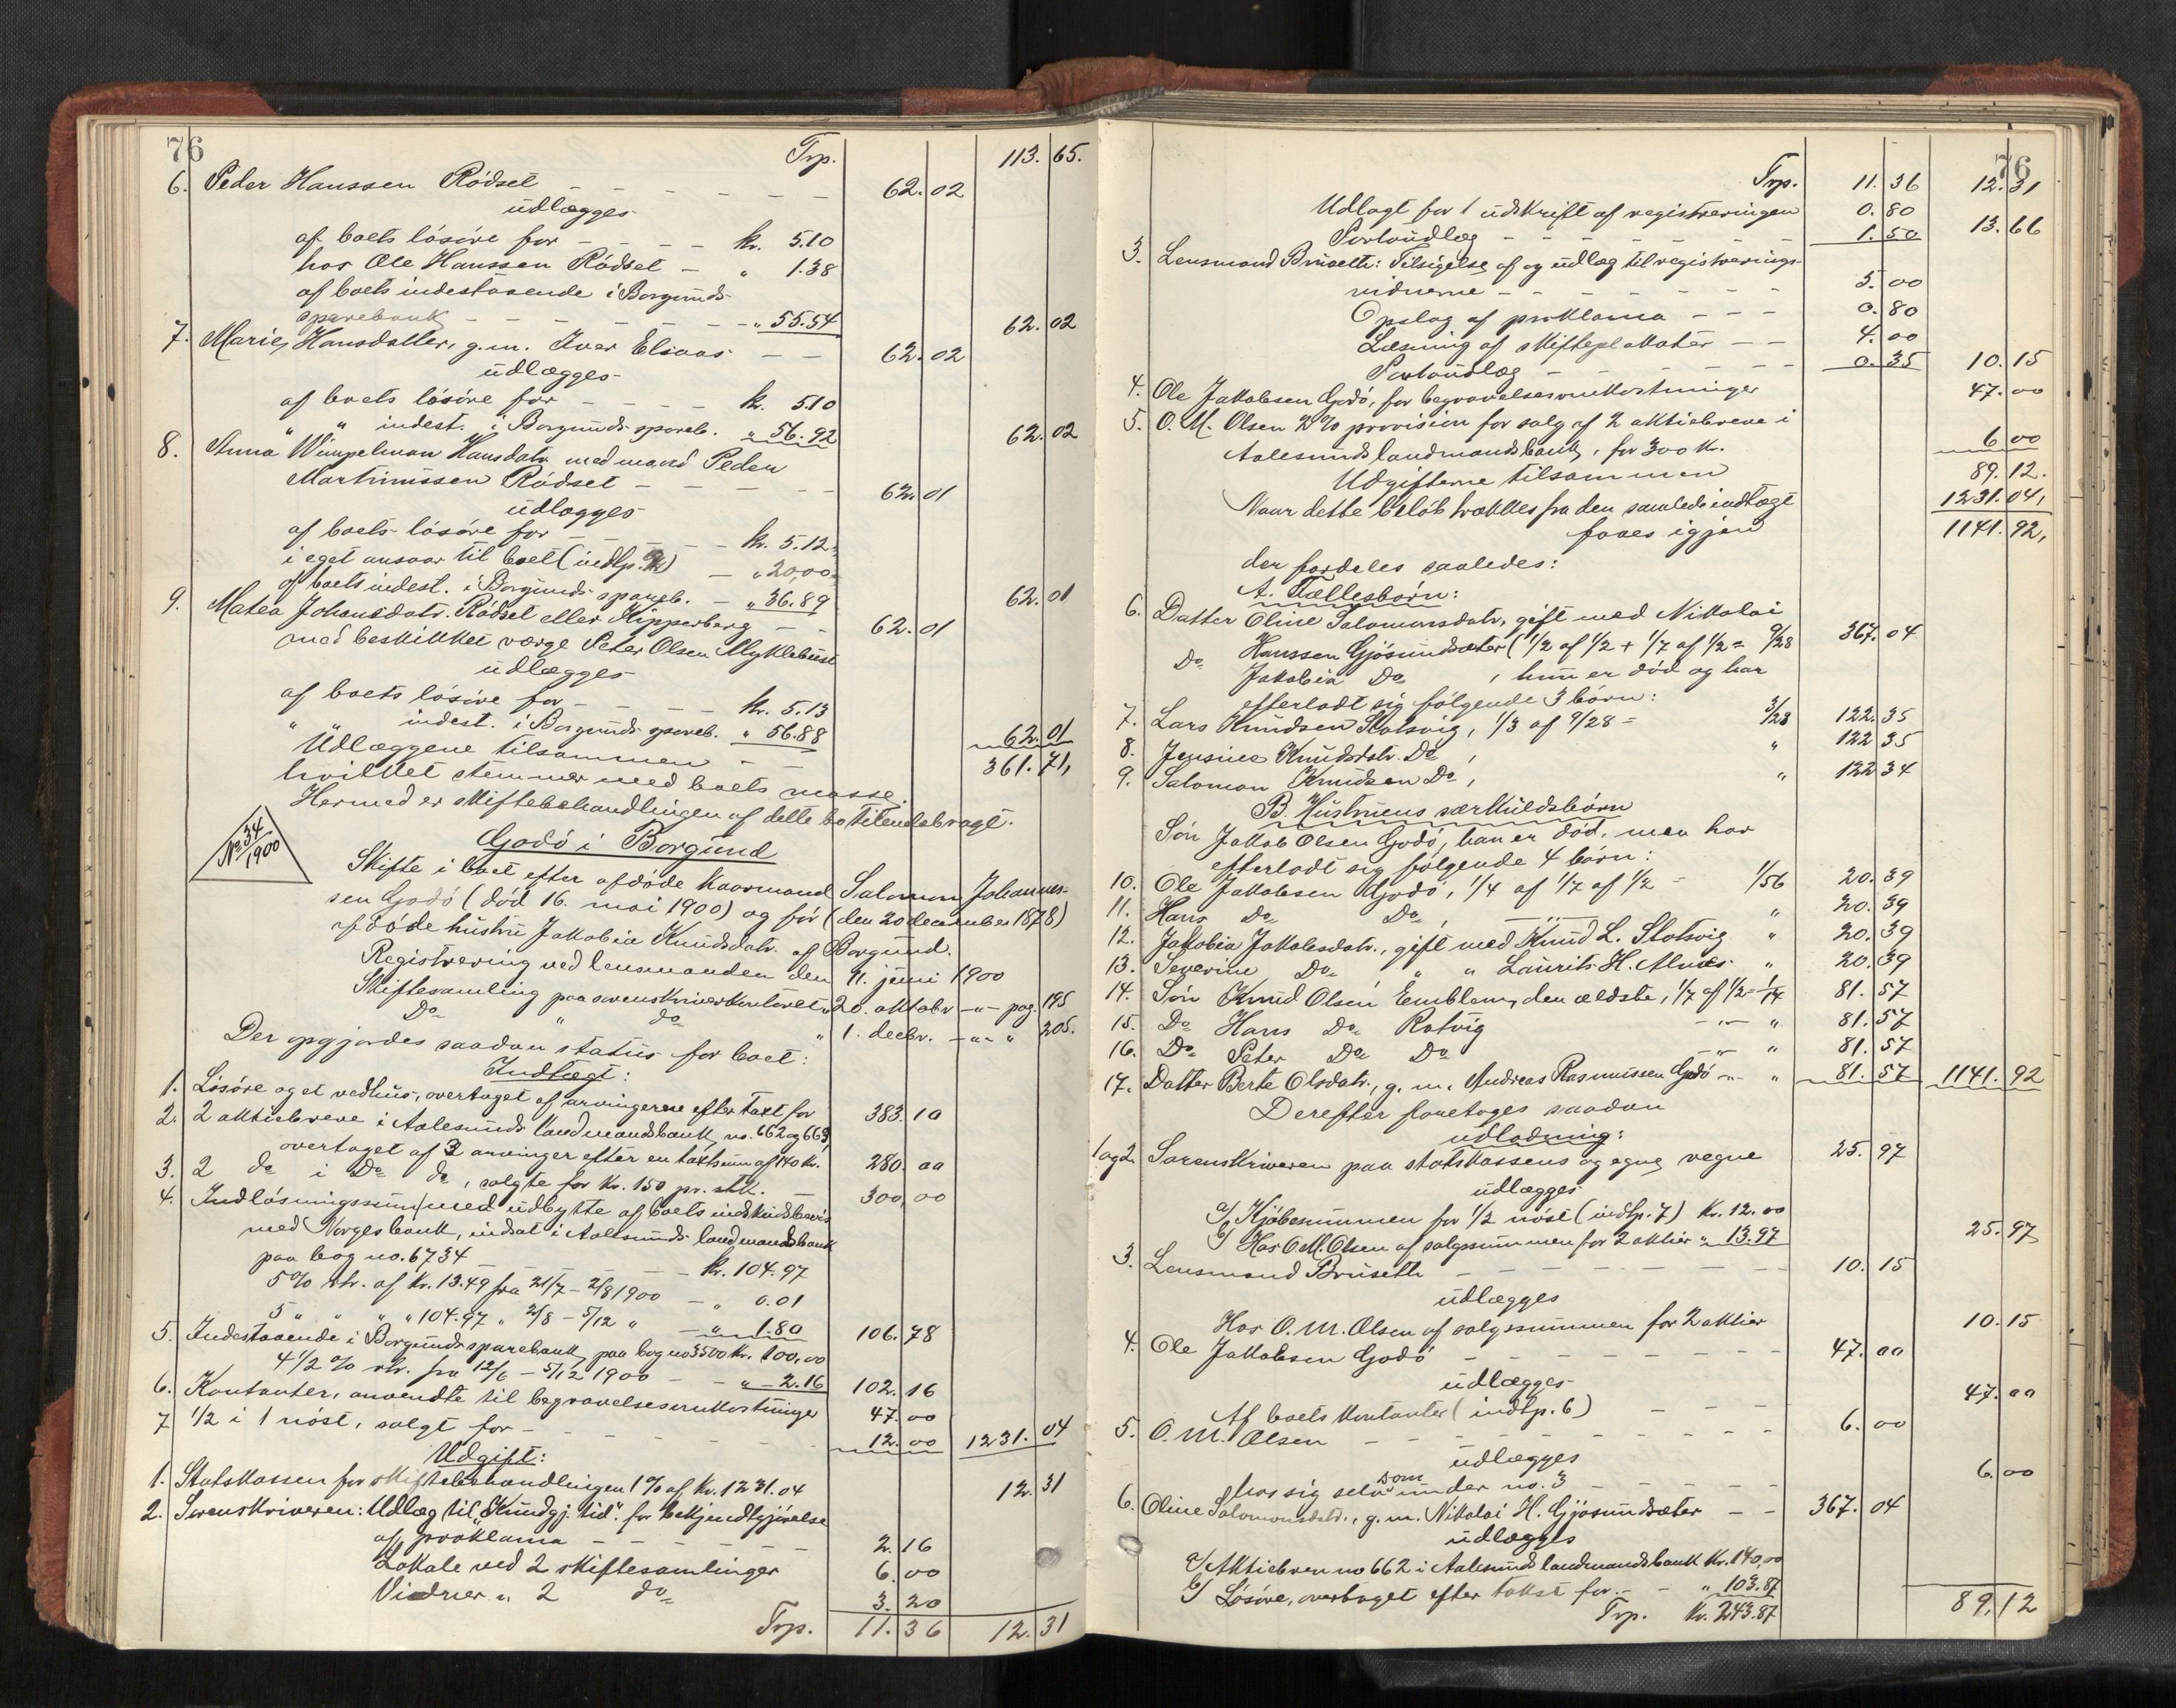 76
Trp. 113.65.
6. Peder Hanssen Rödset - - - - - 62.02
üdlægges
af boets lösöre for - - - - kr. 5.10
hos Ole Hanssen Rödset - " 1.38
af boets indestaaende i Borgunds
sparebank - - - - - - " 55.54 62.02
7. Marie Hansdatter, g.m. Iver Elsaas - - 62.02
üdlægges
af boets lösöre for - - - - kr. 5.10
" " indest. i Borgunds spareb. " 56.92 62.02
8. Anna Wimpelman Hansdatr. med mand Peder
Martinüssen Rödset - - - - - 62.01
üdlægges
af boets lösöre for - - - - kr. 5.12
i eget ansvar til boet (indtp. 2) - " 20,00
af boets indest. i Borgunds spareb. - " 36.89 62.01
9. Matea Johansdatr. Rödset eller Klipperberg - - 62.01
med beskikket værge Peter Olsen Myklebust
üdlægges
af boets lösöre for - - - - kr. 5.13
" " indest. i Borgunds spareb. " 56.88 62.01
Udlæggene tilsammen - - 361.71,
hvilket stemmer med boets masse.
Hermed er skiftebehandlingen af dette bo tilendebragt.
No 34/1900
Godö i Borgund
Skifte i boet efter afdöde kaarmand Salomon Johannes-
sen Godö (död 16. mai 1900) og för (den 20 december 1878)
afdöde hüstrü Jakobia Knudsdatr. af Borgund.
Registrering ved lensmanden den 11. juni 1900
Skiftesamling paa sorenskriverkontoret " 20. oktobr. -"- pag. 195
Do " do " 1. decbr. -"- " 205.
Der opgjordes saadan status for boet:
Indtægt:
1. Lösöre og et vedhüs, overtaget af arvingerne efter taxt for 383.10
2. 2 aktiebreve i Aalesunds landmandsbank, no. 662 og 663,
overtaget af 2 arvinger efter en taxtsum af 140 kr. 280.00
3. 2 do i Do do, solgte for kr. 150 pr. stk. - 300,00
4. Indlösningssum med üdbytte af boets indskudsbevis
med Norges bank, indsat i Aalesunds landmandsbank
paa bog no. 6734 - - - - - kr. 104.97
5% rtr. af kr. 13.49 fra 21/7 - 2/8 1900 - " 0.01
5 " " " " 104.97 " 2/8 - 5/12 " - " 1.80 106.78
5. Indestaaende i Borgunds sparebank paa bog no 3500 kr. 100,00
4 1/2% rtr. fra 12/6 - 5/12 1900 - - " - 2.16 102.16
6. Kontanter, anvendte til begravelsesomkostninger 47.00
7 1/2 i 1 nöst, solgt for - - - - - - 12.00 1231.04
Udgift:
1. Statskassen for skiftebehandlingen 1% af kr. 1231.04 12.31
2. Sorenskriveren: Udlæg til "Kundgj. tid". for bekjendtgjörelse
af proklama - - - - - - 2.16
Lokale ved 2 skiftesamlinger 6.00
Vidner " 2 do 3.20
Trp. 11.36 12.31
76
Trp. 11.36 12.31
Udlagt for 1 üdskrift af registreringen 0.80
Portoüdlæg - - - - - - - 1.50 13.66
3. Lensmand Brüseth: Tilsigelse af og üdlæg til registrerings-
vidnerne - - - - - - - 5.00
Opslag af proklama - - - 0.80
Læsning af skifteplakater - - 4.00
Portoüdlæg - - - - - - 0.35 10.15
4. Ole Jakobsen Godö, for begravelsesomkostninger 47.00
5. O. M. Olsen 2% provision for salg af 2 aktiebreve i
Aalesunds landmandsbank, for 300 kr. 6 00
Udgifterne tilsammen 89.12.
Naar dette belöb trækkes fra den samlede indtægt 1231.04,
faaes igjen 1141.92,
der fordeles saaledes:
A. Fællesbörn:
6. Datter Oline Salomonsdatr., gift med Nikolai
Hanssen Gjösundsæter (1/2 af 1/2 + 1/7 af 1/2 = 9/28 367.04
Do Jakobia Do , hun er död og har
efterladt sig fölgende 3 börn:
7. Lars Knudsen Slotsvig, 1/3 af 9/28 = 3/28 122.35
8. Jensine Knudsdtr. Do , " 122 35
9. Salomon Knudsen Do , " 122 34
B. Hüstrüens særkuldsbörn
Sön Jakob Olsen Godö, han er död, men har
efterladt sig fölgende 4 börn:
10. Ole Jakobsen Godö, 1/4 af 1/7 af 1/2 = 1/56 20.39
11. Hans Do Do , -"- " 20.39
12. Jakobia Jakobsdtr., gift med Knud L. Slotsvig " 20.39
13. Severine Do " " Laurits H. Alnæs " 20.39
14. Sön Knud Olsen Emblem, den ældste, 1/7 af 1/2 = 1/14 81.57
15. Do Hans Do Rotvig -"- " 81.57
16. Do Peter Do Do -"- " 81.57
17. Datter Berte Olsdatr., g. m. Andreas Rasmussen Godö -"- " 81.57 1141.92
Derefter foretoges saadan
udlodning:
1 og 2. Sorenskriveren paa statskassens og egne vegne 25.97
üdlægges
a/ Kjöbesummen for 1/2 nöst (indtp. 7) kr. 12.00
b/ Hos O. M. Olsen af salgssummen for 2 aktier " 13.97 25.97
3. Lensmand Brüseth - - - - - - 10.15
üdlægges
Hos O. M. Olsen af salgssummen for 2 aktier 10.15
4. Ole Jakobsen Godö - - - - - - 47.00
üdlægges
Af boets kontanter (indtp. 6) - - - 47.00
5. O. M. Olsen - - - - - - - 6.00
üdlægges
hos sig selv som under no. 3 - - - - 6.00
6. Oline Salomonsdatr., g. m. Nikolai H. Gjösundsæter - - 367.04
üdlægges
a/ Aktiebrev no 662 i Aalesunds landmandsbank kr. 140,00
b/ Lösöre, overtaget efter takst for - - " 103.87
Trp. kr. 243.87 89,12